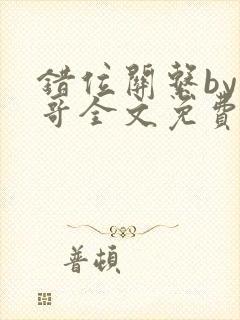 错位關繫by
哥全文免費
普頓